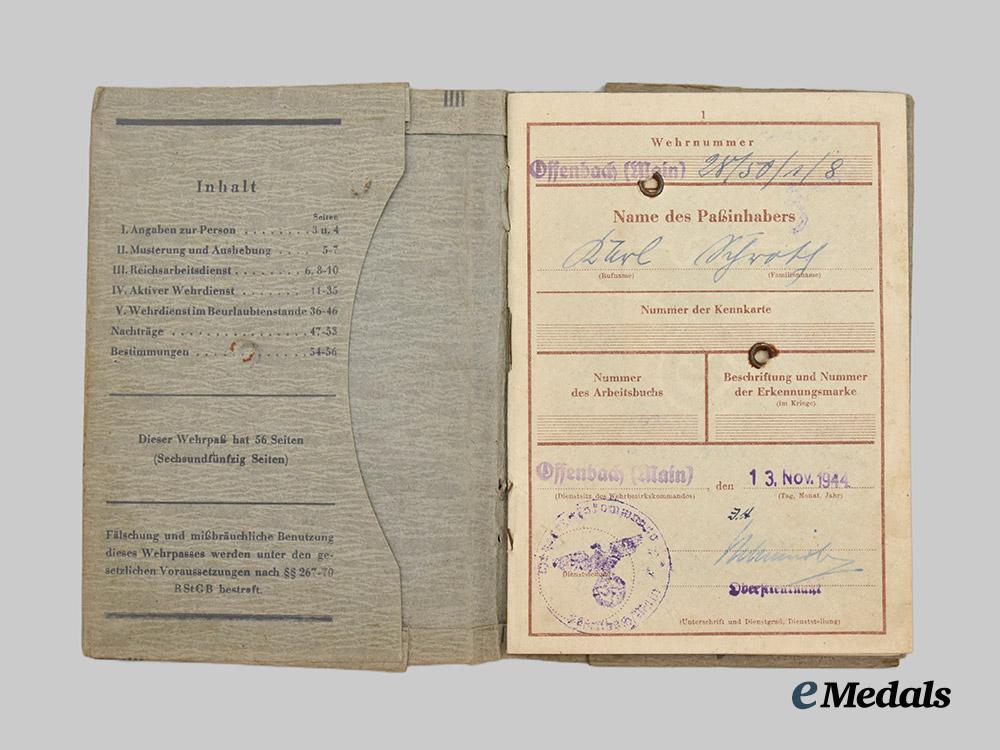 Inhalt
Seiten
I. Angaben zur Person . . . . . . . . 3 u. 4
II. Musterung und Aushebung . . . . 5-7
III. Reichsarbeitsdienst . . . . . . . . 6, 8-10
IV. Aktiver Wehrdienst . . . . . . . . 11-35
V. Wehrdienst im Beurlaubtenstande 36-46
Nachträge . . . . . . . . . . . . . . . 47-53
Bestimmungen . . . . . . . . . . . . 54-56
Dieser Wehrpaß hat 56 Seiten
(Sechsundfünfzig Seiten)
Fälschung und mißbräuchliche Benutzung
dieses Wehrpasses werden unter den ge-
setzlichen Voraussetzungen nach §§ 267-70
RStGB bestraft.
1
Wehrnummer
Offenbach (Main) 28/50/1/8
Name des Paßinhabers
Karl Schroth
(Rufname) (Familienname)
Nummer der Kennkarte
Nummer
des Arbeitsbuchs
Beschriftung und Nummer
der Erkennungsmarke
(im Kriege)
Offenbach (Main), den 13. Nov. 1944
(Dienstsitz des Wehrbezirkskommandos) (Tag, Monat, Jahr)
Oberstleutnant
(Unterschrift und Dienstgrad, Dienststellung)
eMedals